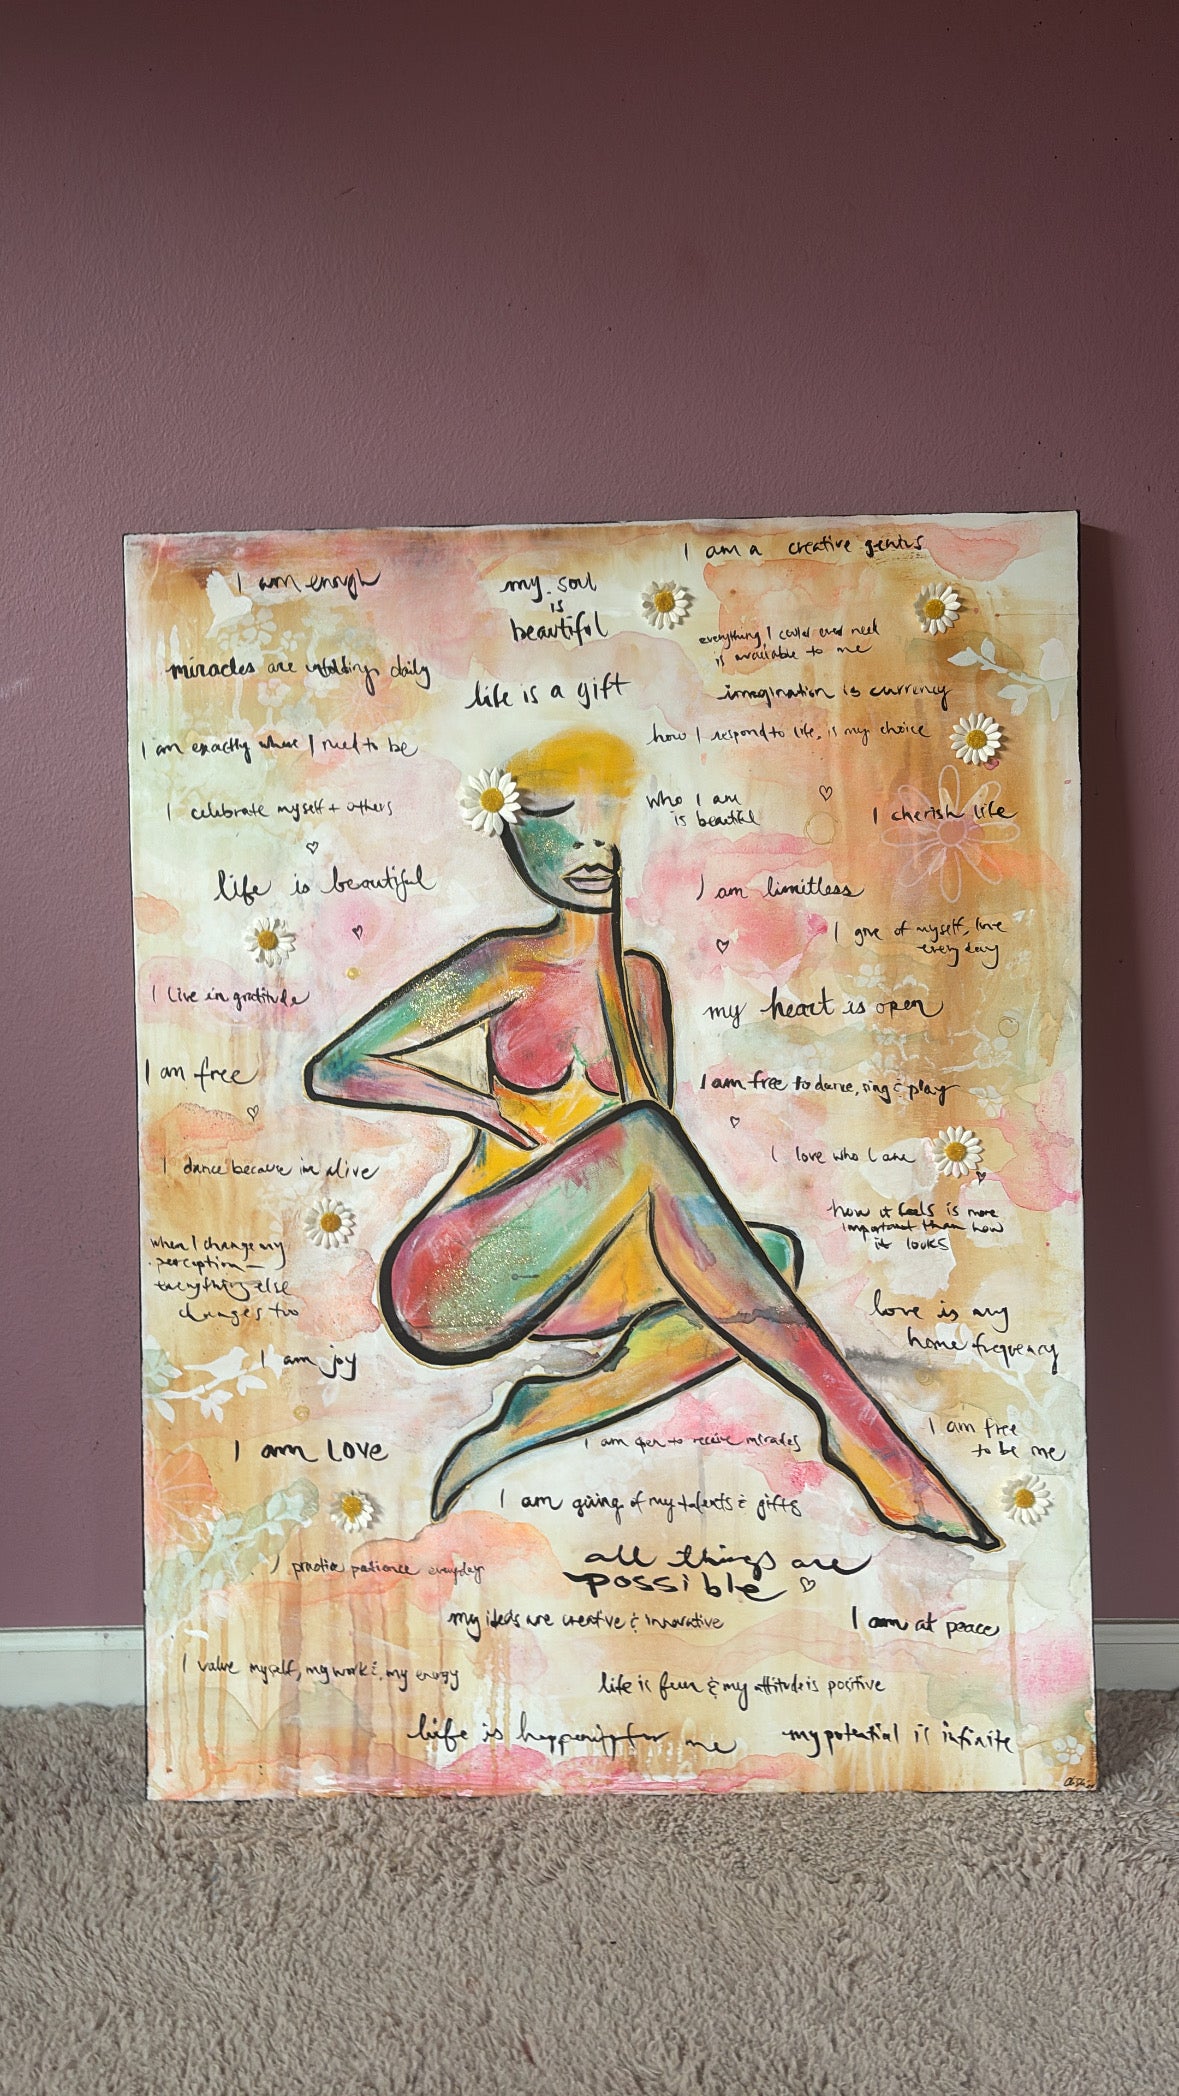 I am a creative genius
I am enough
my soul
is
beautiful
everything I could ever need
is available to me
miracles are unfolding daily
life is a gift
imagination is currency
how I respond to life, is my choice
I am exactly where I need to be
who I am
is beautiful
I celebrate myself + others
I cherish life
life is beautiful
I am limitless
I give of myself, love
every day
I live in gratitude
my heart is open
I am free
I am free to dance, sing & play
I love who I am
I dance because im alive
how it feels is more
important than how
it looks
when I change my
perception —
everything else
changes too
love is my
home frequency
I am joy
I am free
to be me
I am love
I am open to receive miracles
I am giving of my talents & gifts
all things are
possible
I practice patience everyday
my ideas are creative & innovative
I am at peace
I value myself, my work & my energy
life is fun & my attitude is positive
life is happening for me
my potential is infinite